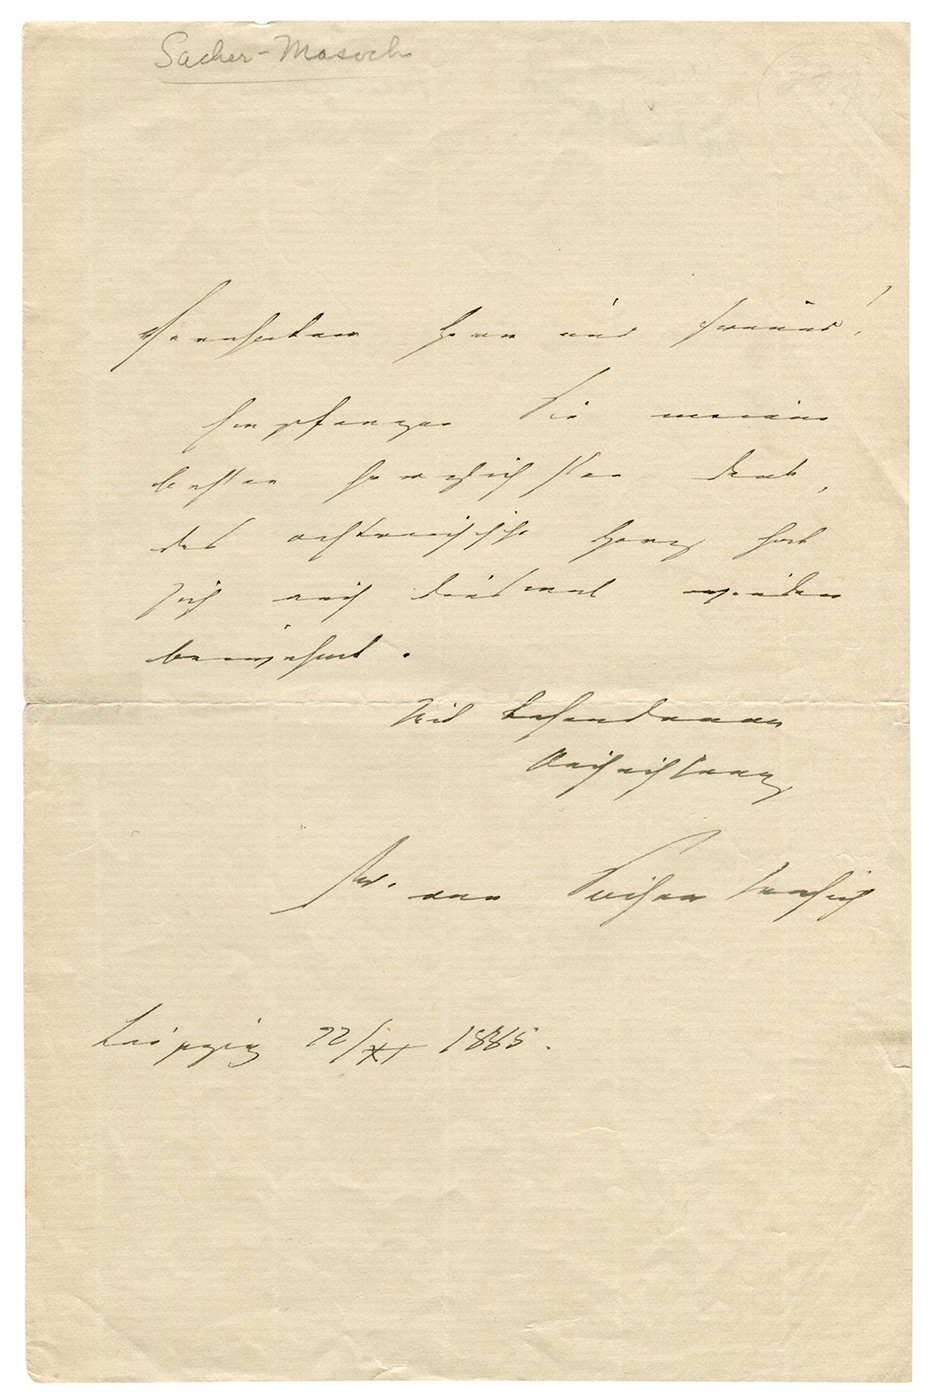 Sacher-Masoch
Verehrter Herr und Freund!
Empfangen Sie meinen
besten herzlichsten Dank,
das österreichische Herz hat
sich auch diesmal wieder
bewährt.
Mit besonderer
Hochachtung
Dr. von Sacher Masoch
Leipzig 22/XI 1885.